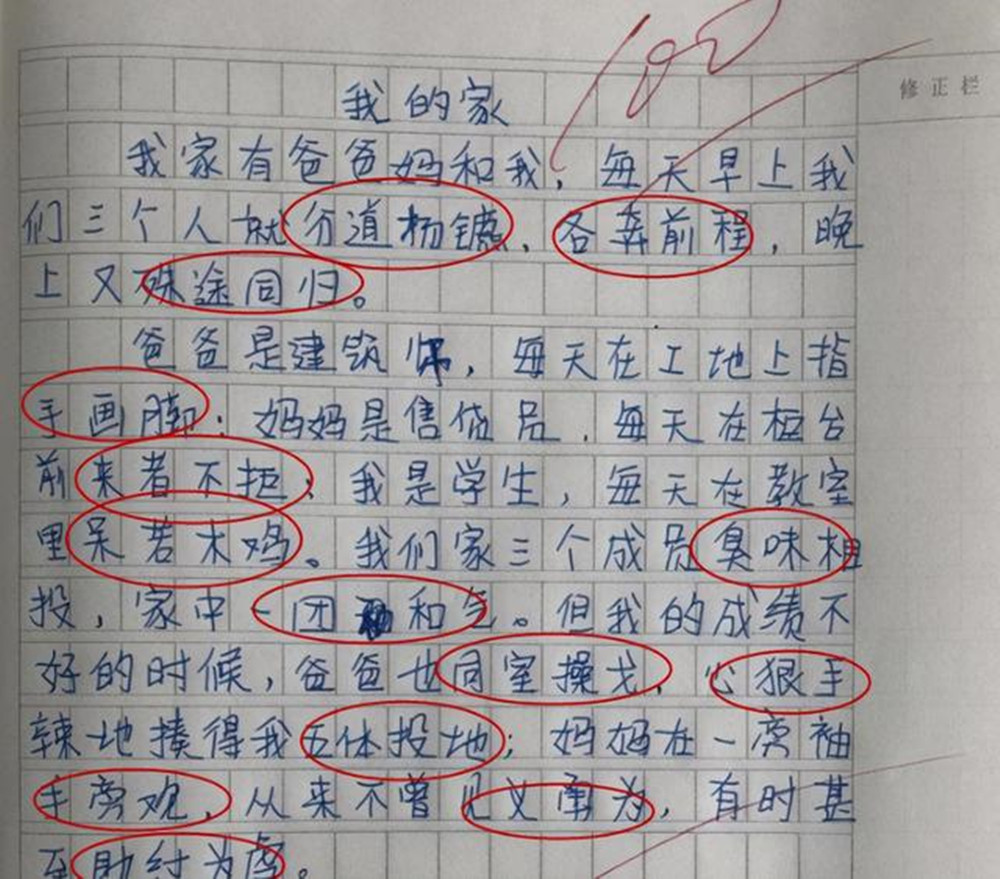 100
修正栏
我的家
我家有爸爸妈和我，每天早上我
们三个人就分道杨镳，各奔前程，晚
上又殊途同归。
爸爸是建筑师，每天在工地上指
手画脚；妈妈是售货员，每天在柜台
前来者不拒；我是学生，每天在教室
里呆若木鸡。我们家三个成员臭味相
投，家中一团和气。但我的成绩不
好的时候，爸爸也同室操戈，心狠手
辣地揍得我五体投地；妈妈在一旁袖
手旁观，从来不曾见义勇为，有时甚
至助纣为虐。